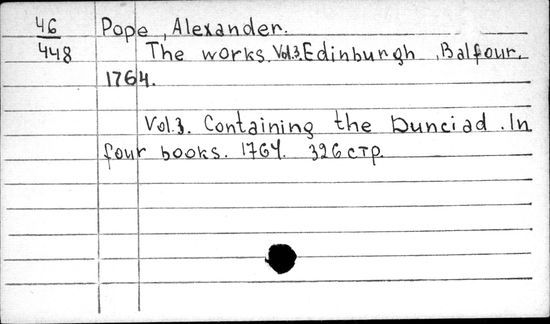 46 Pope, Alexander.
448 The works. Vol.3. Edinburgh, Balfour,
1764.
Vol.3. Containing the Dunciad. In
four books. 1764. 326 стр.